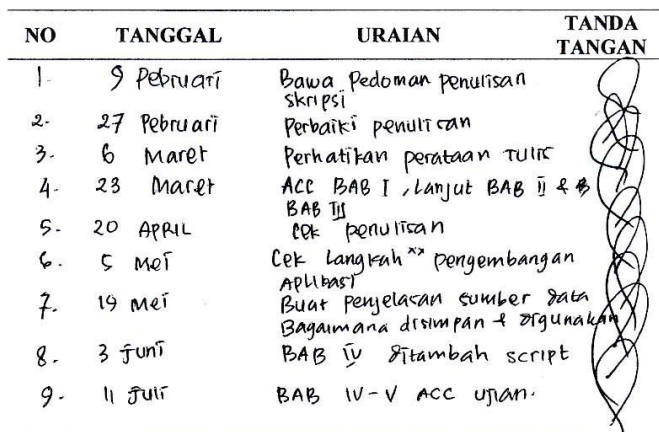 NO TANGGAL URAIAN TANDA TANGAN
1. 9 Pebruari Bawa Pedoman penulisan
skripsi
2. 27 Pebruari Perbaiki penulisan
3. 6 Maret Perhatikan perataan Tulis
4. 23 Maret ACC BAB I, Lanjut BAB II & B
BAB III
5. 20 APRIL Cek penulisan
6. 5 Mei Cek Langkah xx pengembangan
Aplikasi
7. 19 Mei Buat penjelasan sumber data
Bagaimana disimpan & digunakan
8. 3 Juni BAB IV ditambah script
9. 11 Juli BAB IV-V ACC ujian.